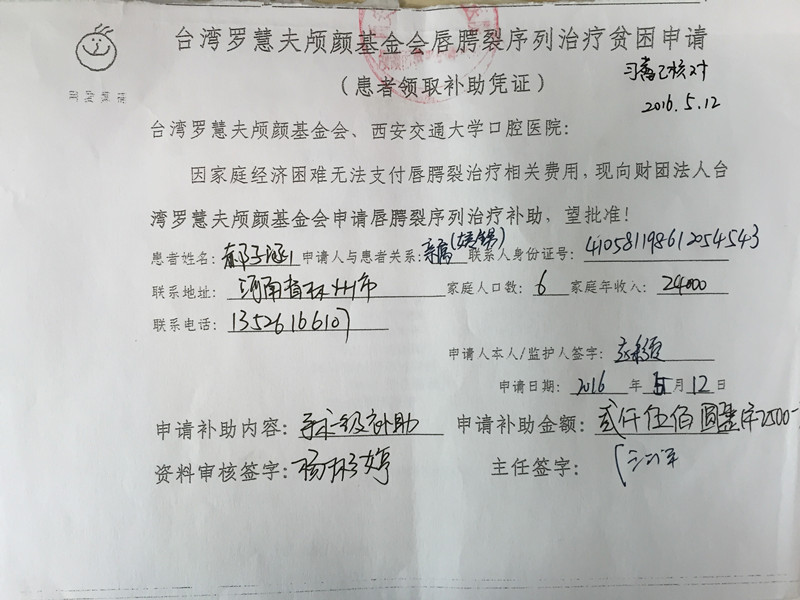 台湾罗慧夫颅颜基金会唇腭裂序列治疗贫困申请
（患者领取补助凭证）
已核对
2016.5.12
台湾罗慧夫颅颜基金会、西安交通大学口腔医院：
因家庭经济困难无法支付唇腭裂治疗相关费用，现向财团法人台
湾罗慧夫颅颜基金会申请唇腭裂序列治疗补助，望批准！
患者姓名：郝子涵 申请人与患者关系：亲属 联系人身份证号：410581198612054543
联系地址：河南省林州市 家庭人口数：6 家庭年收入：24000
联系电话：13526166107
申请人本人/监护人签字：
申请日期：2016 年 5 月 12 日
申请补助内容：手术一级补助 申请补助金额：贰仟伍佰圆整 2500
资料审核签字：杨 婷 主任签字：